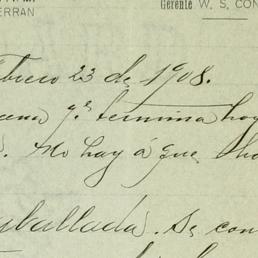 ERRAN
Gerente W. S. CON
brero 23 de 1908.
ena q.e termina hoy
No hay á que
emballada. Se con